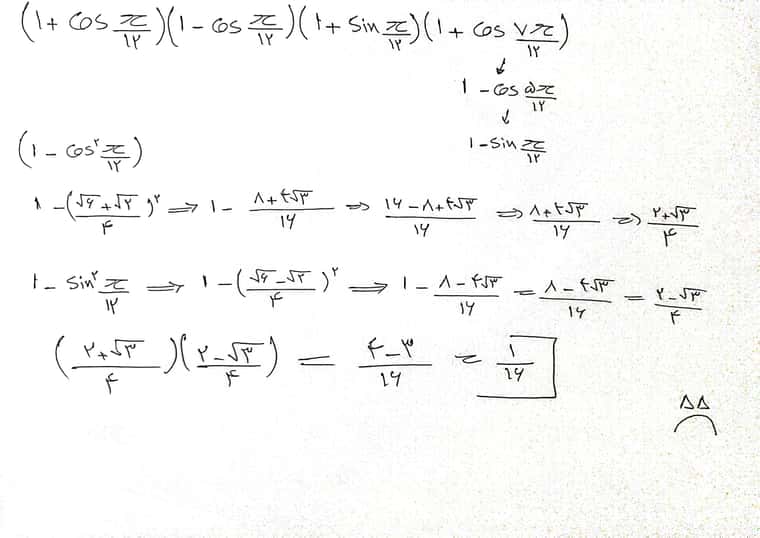 (1 + cos π/۱۲)(1 - cos π/۱۲)(1 + sin π/۱۲)(1 + cos ۷π/۱۲)
↓
1 - cos ۵π/۱۲
↓
1 - sin π/۱۲
(1 - cos² π/۱۲)
1 - ((√۶ + √۲)/۴)^۲ ⇒ 1 - (۸ + ۴√۳)/۱۶ ⇒ (۱۶ - ۸ + ۴√۳)/۱۶ ⇒ (۸ + ۴√۳)/۱۶ ⇒ (۲ + √۳)/۴
1 - sin² π/۱۲ ⇒ 1 - ((√۶ - √۲)/۴)^۲ ⇒ 1 - (۸ - ۴√۳)/۱۶ = (۸ - ۴√۳)/۱۶ = (۲ - √۳)/۴
((۲ + √۳)/۴)((۲ - √۳)/۴) = (۴ - ۳)/۱۶ = ۱/۱۶